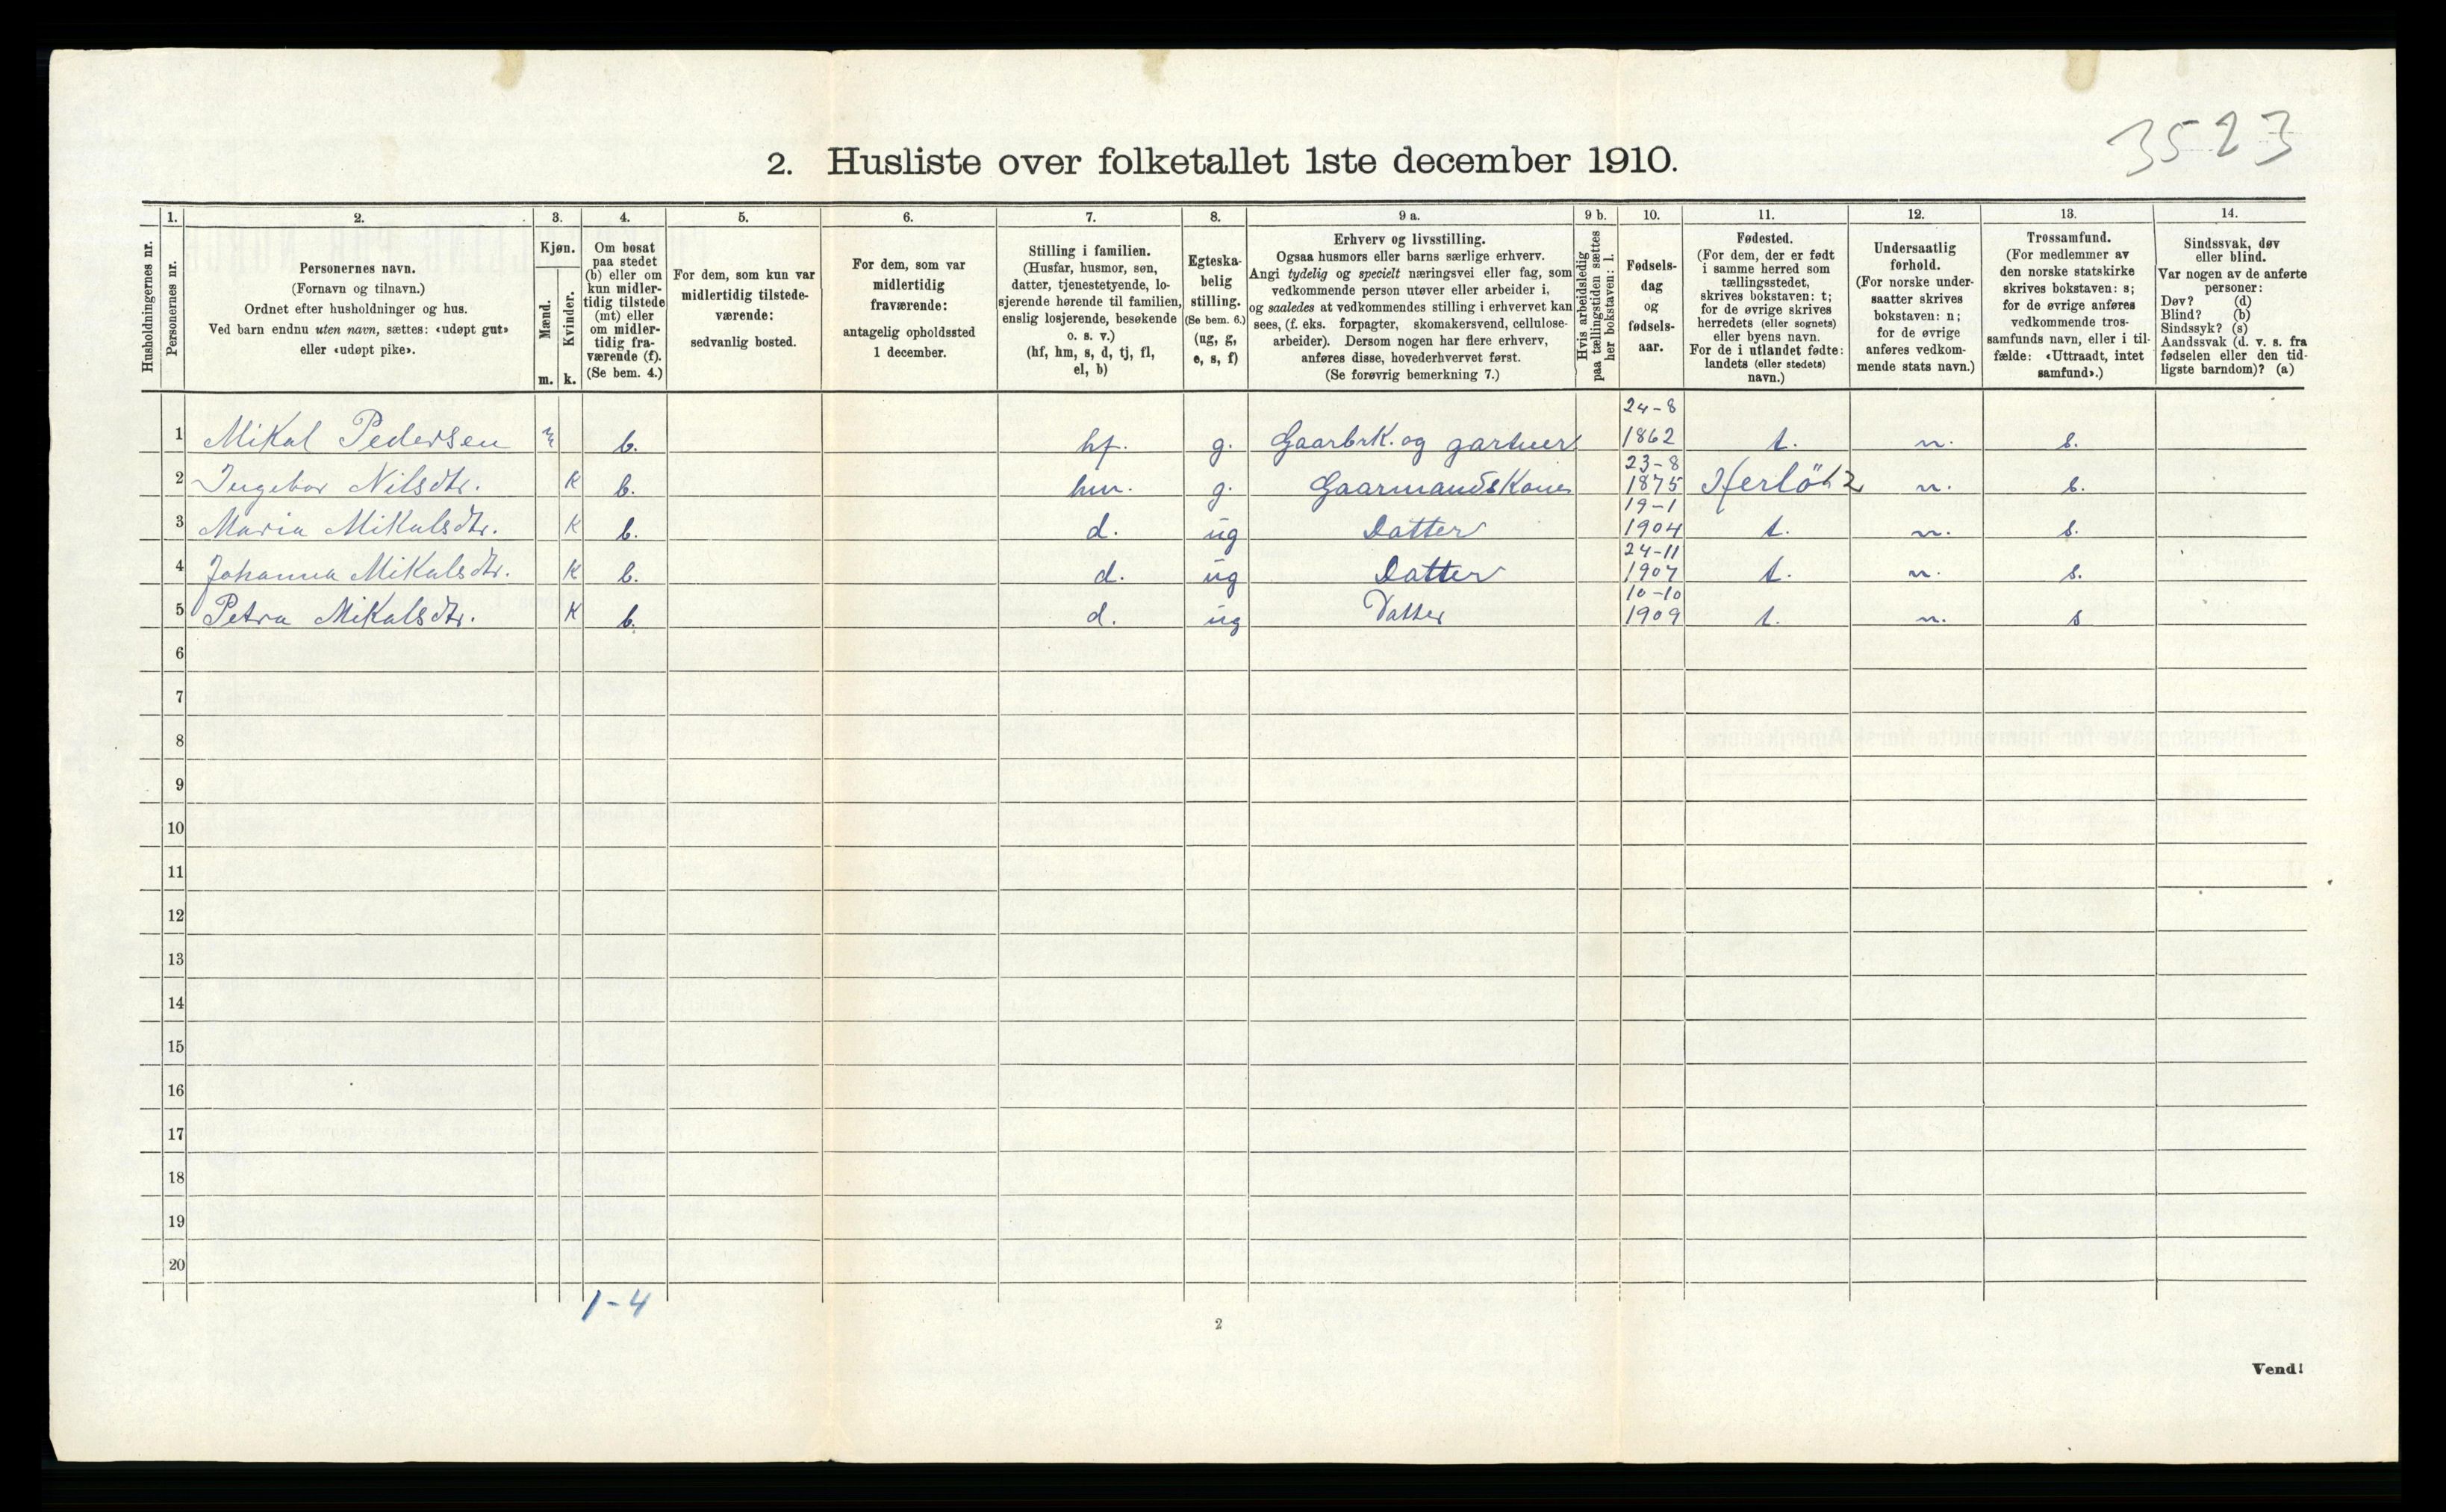 3523
2. Husliste over folketallet 1ste december 1910.
Husholdningernes nr.
1.
Personernes nr.
2.
Personernes navn.
(Fornavn og tilnavn.)
Ordnet efter husholdninger og hus.
Ved barn endnu uten navn, sættes: «udøpt gut»
eller «udøpt pike».
3.
Kjøn.
Mænd.
Kvinder.
m. k.
4.
Om bosat
paa stedet
(b) eller om
kun midler-
tidig tilstede
(mt) eller
om midler-
tidig fra-
værende (f).
(Se bem. 4.)
5.
For dem, som kun var
midlertidig tilstede-
værende:
sedvanlig bosted.
6.
For dem, som var
midlertidig
fraværende:
antagelig opholdssted
1 december.
7.
Stilling i familien.
(Husfar, husmor, søn,
datter, tjenestetyende, lo-
sjerende hørende til familien,
enslig losjerende, besøkende
o. s. v.)
(hf, hm, s, d, tj, fl,
el, b)
8.
Egteska-
belig
stilling.
(Se bem. 6.)
(ug, g,
e, s, f)
9 a.
Erhverv og livsstilling.
Ogsaa husmors eller barns særlige erhverv.
Angi tydelig og specielt næringsvei eller fag, som
vedkommende person utøver eller arbeider i,
og saaledes at vedkommendes stilling i erhvervet kan
sees, (f. eks. forpagter, skomakersvend, cellulose-
arbeider). Dersom nogen har flere erhverv,
anføres disse, hovederhvervet først.
(Se forøvrig bemerkning 7.)
9 b.
Hvis arbeidsledig
paa tællingstiden sættes
her bokstaven: l.
10.
Fødsels-
dag
og
fødsels-
aar.
11.
Fødested.
(For dem, der er født
i samme herred som
tællingsstedet,
skrives bokstaven: t;
for de øvrige skrives
herredets (eller sognets)
eller byens navn.
For de i utlandet fødte:
landets (eller stedets)
navn.)
12.
Undersaatlig
forhold.
(For norske under-
saatter skrives
bokstaven: n;
for de øvrige
anføres vedkom-
mende stats navn.)
13.
Trossamfund.
(For medlemmer av
den norske statskirke
skrives bokstaven: s;
for de øvrige anføres
vedkommende tros-
samfunds navn, eller i til-
fælde: «Uttraadt, intet
samfund».)
14.
Sindssvak, døv
eller blind.
Var nogen av de anførte
personer:
Døv? (d)
Blind? (b)
Sindssyk? (s)
Aandssvak (d. v. s. fra
fødselen eller den tid-
ligste barndom)? (a)
1 Mikal Pedersen m b. hf. g. Gaarbrk. og gartner 24-8 1862 t. n. s.
2 Ingebor Nilsdtr. K b. hm. g. GaarmandsKone 23-8 1875 Herlö 12 n. s.
3 Maria Mikalsdtr. K b. d. ug Datter 19-1 1904 t. n. s.
4 Johanna Mikalsdtr. K b. d. ug Datter 24-11 1907 t. n. s.
5 Petra Mikalsdtr. K b. d. ug Datter 10-10 1909 t. n. s
6
7
8
9
10
11
12
13
14
15
16
17
18
19
20
1-4
2
Vend!